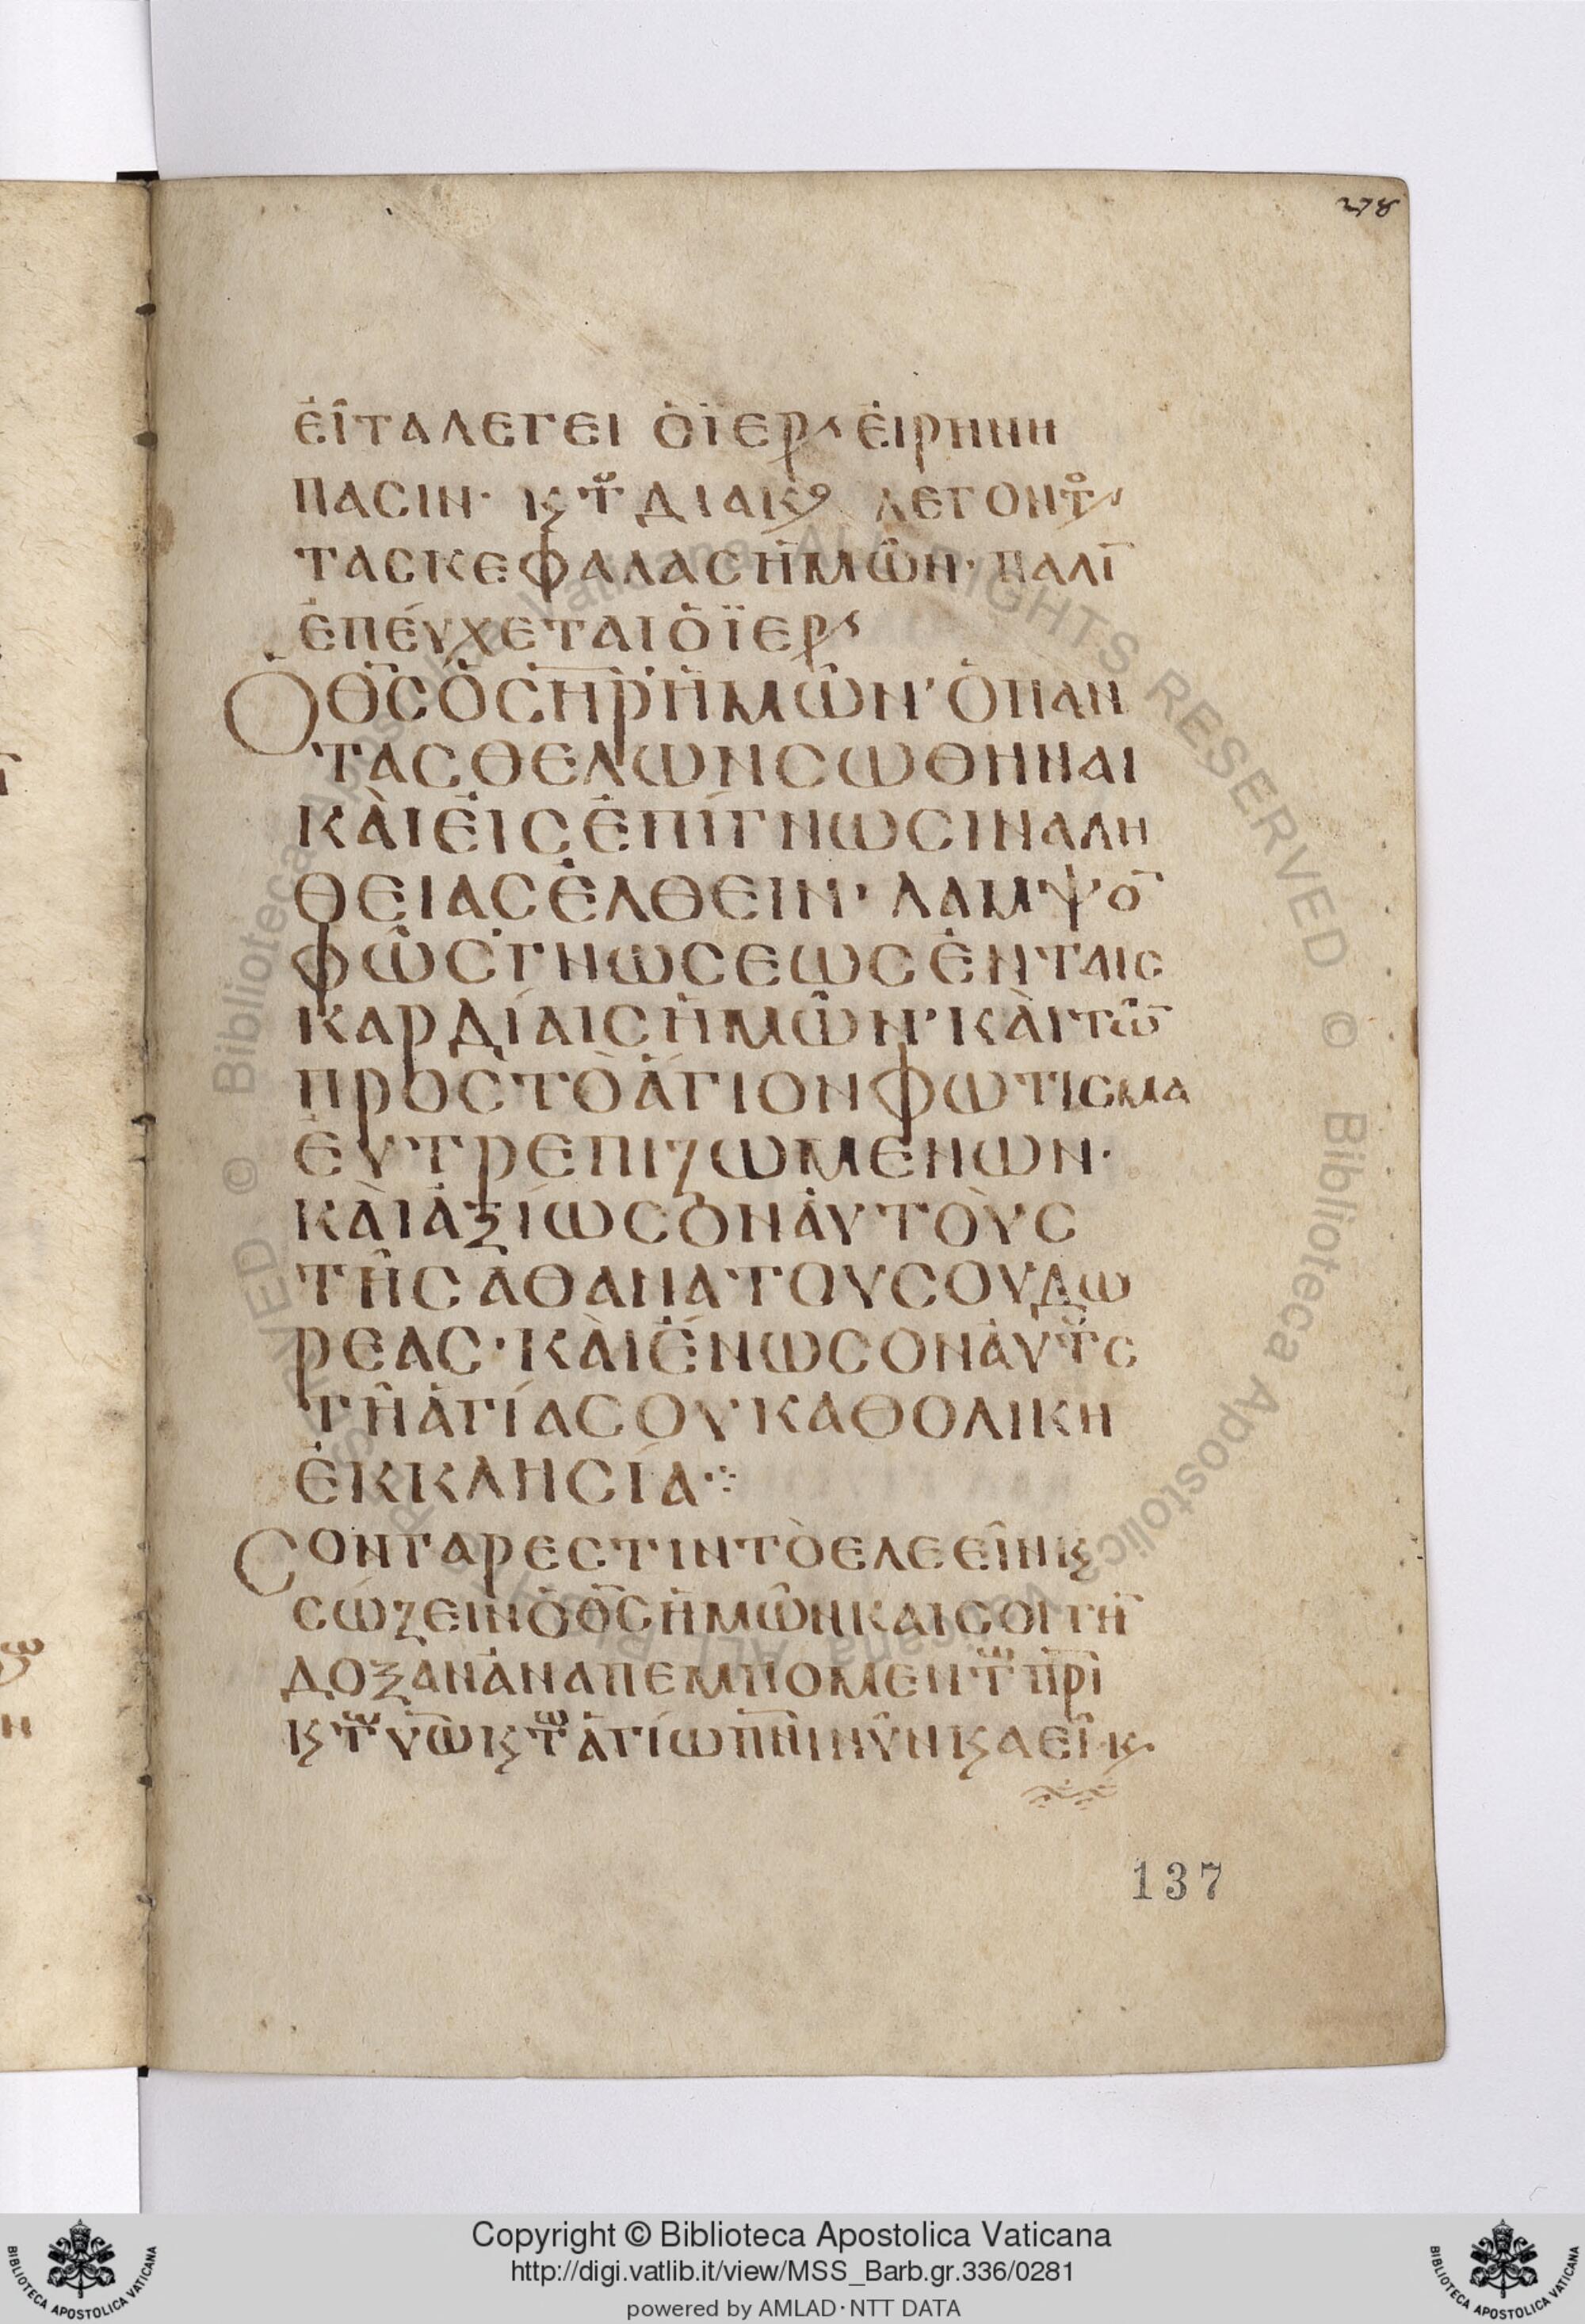 278
ἐῖτα λέγει ὁ ἱερ ἐιρηνη
πασιν· κ τȣ διακο λεγοντο
τας κεφαλας ἡμῶν· παλῑ
ἐπεύχεται ὁ ϊερ
Ὁ θ̅ς̅ ὁ σ̅η̅ρ̅ ἡμῶν· ὁ παν
τας θελων σωθηναι
κὰι ἐις ἐπίγνωσιν αλη
θειας ἐλθειν· λαμψο̅
φῶς γνωσεως ἐν ταις
καρδίαις ἡμῶν· κὰι τῶ̅
προς τὸ ἅγιον φωτισμα
ἐυτρεπιζωμενων·
κὰι ἀξίωσον ἀυτοὺς
τῆς ἀθανατου σου δω
ρεας· κὰι ἕνωσον ἀυτȣς
τῆ ἁγία σου καθολικη
ἐκκλησία·:·
Σον γαρ εστιν τὸ ελεεῖν κ
σώζειν ὁ θ̅ς̅ ἡμῶν και σοι τὴ̅
δοξαν ἀναπεμπομεν τω π̅ρ̅ι̅
κ τω υ̅ω̅ κ τω ἁγίω π̅ν̅ι̅ νῦν κ αεῖ κ
137
Copyright © Biblioteca Apostolica Vaticana
http://digi.vatlib.it/view/MSS_Barb.gr.336/0281
powered by AMLAD·NTT DATA